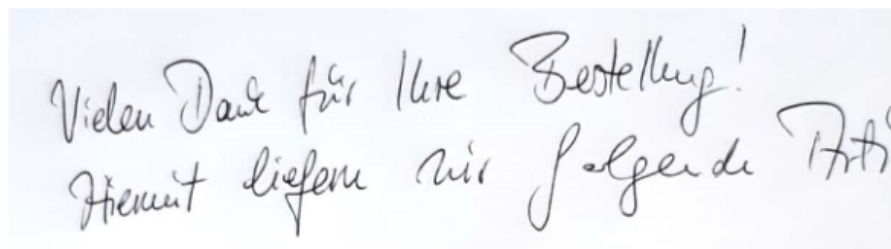 Vielen Dank für Ihre Bestellung!
Hiermit liefern wir folgende Arti